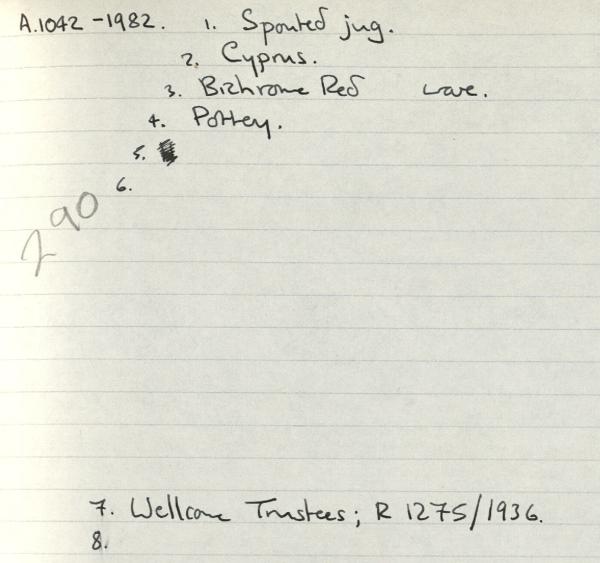 A.1042-1982. 1. Spouted jug.
2. Cyprus.
3. Bichrome Red ware.
4. Pottery.
5.
6.
290
7. Wellcome Trustees; R 1275/1936.
8.